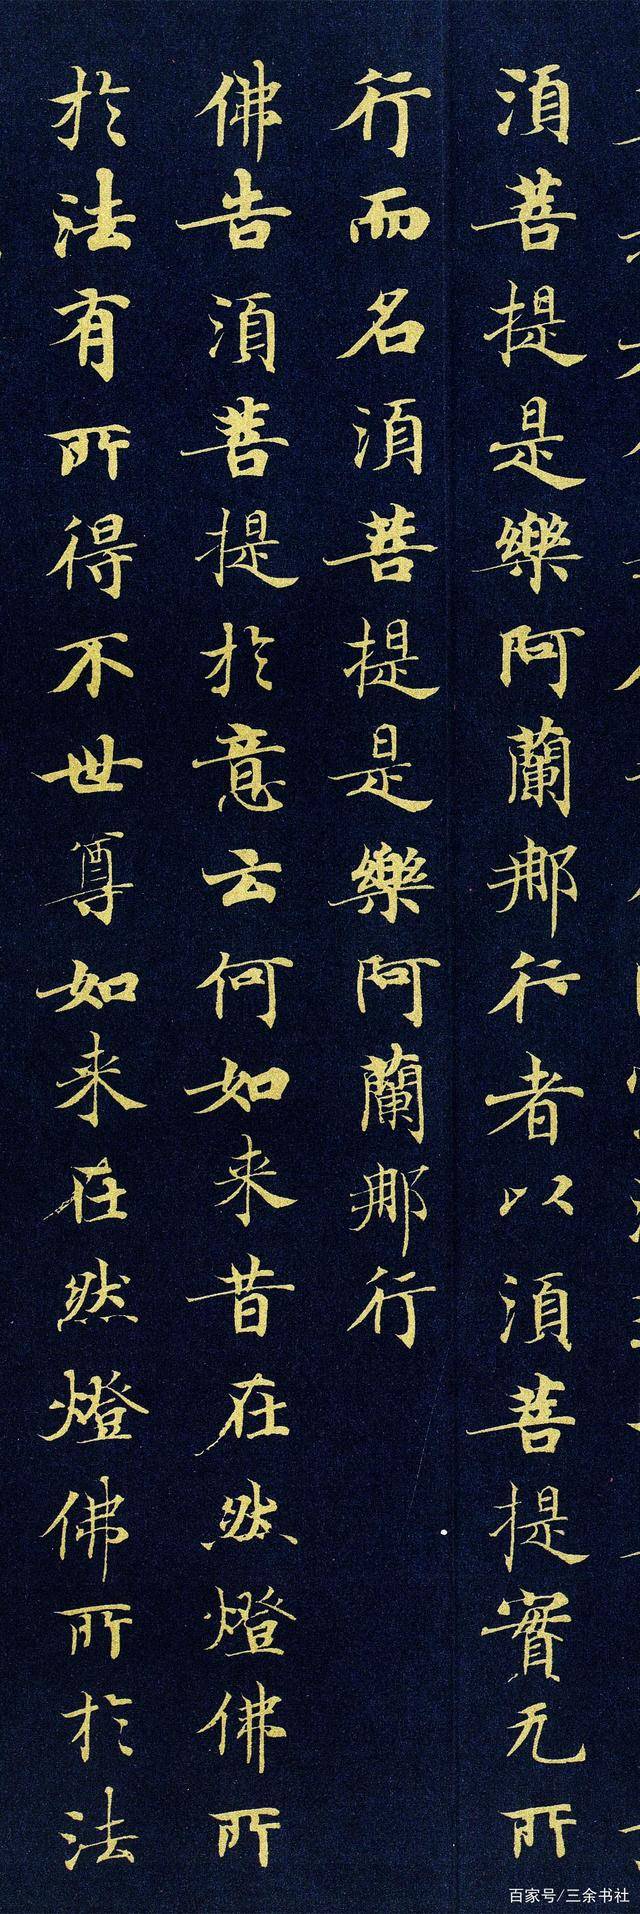 湏菩提是樂阿蘭那行者以湏菩提實无所
行而名湏菩提是樂阿蘭那行
佛告湏菩提於意云何如来昔在然燈佛所
於法有所得不世尊如来在然燈佛所於法
百家号/三余书社